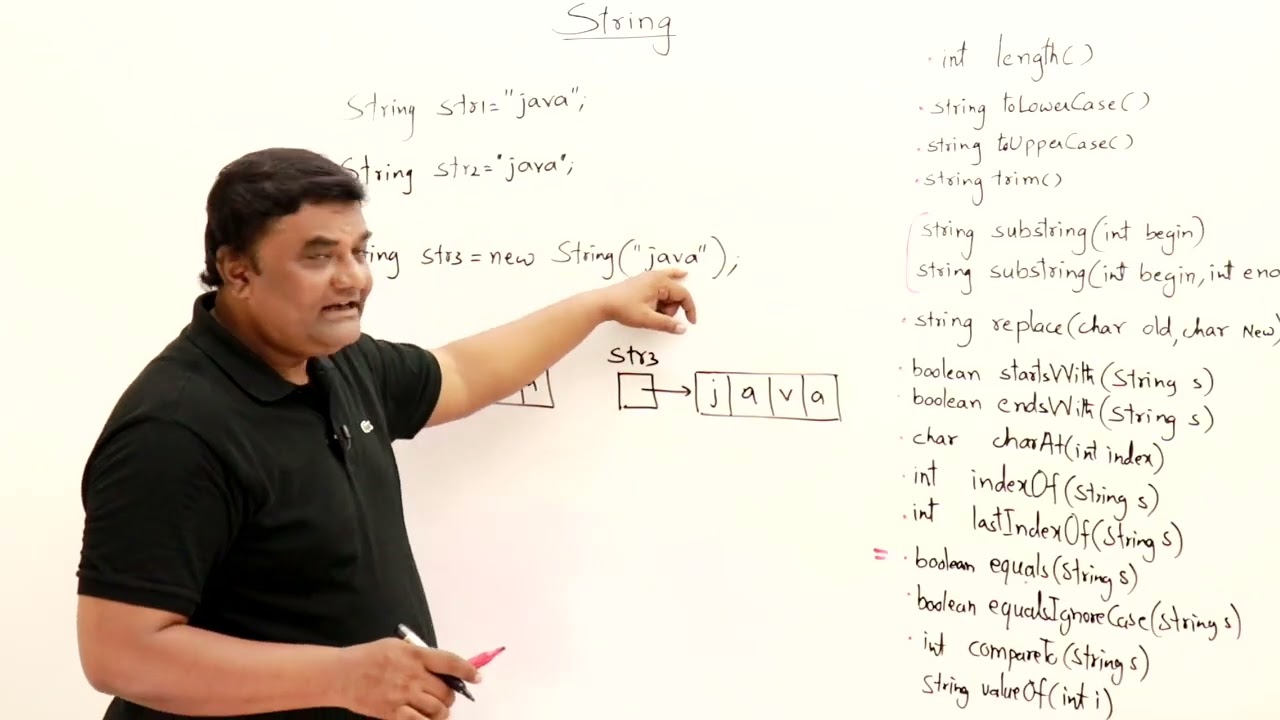 String
String str1="java";
String str2="java";
ing str3 = new String("java");
str3
j a v a
· int length()
· string toLowerCase()
· string toUpperCase()
· string trim()
string substring(int begin)
string substring(int begin, int end
· string replace(char old, char New)
· boolean startsWith(String s)
· boolean endsWith(String s)
· char charAt(int index)
· int indexOf(String s)
· int lastIndexOf(String s)
= · boolean equals(String s)
· boolean equalsIgnoreCase(String s)
· int compareTo(String s)
String valueOf(int i)